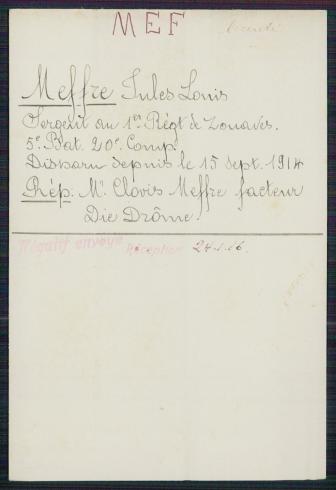 MEF
Meffre Jules Louis
Sergent au 1er Régt de Zouaves.
5e Bat. 20e Comp.
Disparu depuis le 15 Sept. 1914
Rép: Mr Clovis Meffre facteur
Die Drôme.
Négatif envoyé
Réception 24.1.16.